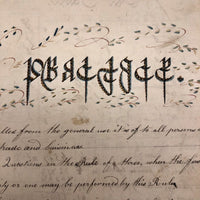 PRACTICE.
led from the general use it is of to all persons
trade and business
Questions in the Rule of three, when the fir
ty or one may be performed by this Rule